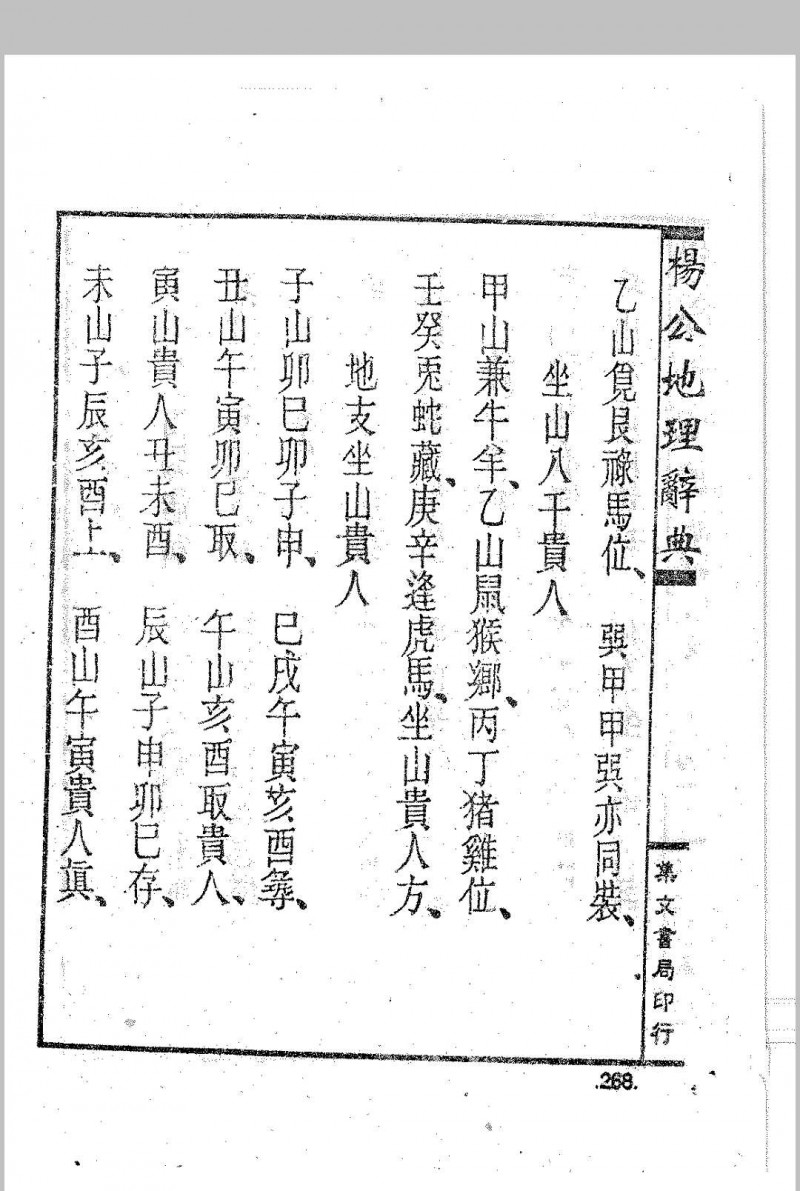 楊公地理辭典
乙山覓艮祿馬位、　巽甲甲巽亦同裝、
坐山八千貴人
甲山兼牛羊、乙山鼠猴鄉、丙丁猪雞位、
壬癸兎蛇藏、庚辛逢虎馬、坐山貴人方、
地支坐山貴人
子山卯巳卯子申、　巳戌午寅亥酉尋、
丑山午寅卯巳取、　午山亥酉取貴人、
寅山貴人丑未酉、　辰山子申卯巳存、
未山子辰亥酉上、　酉山午寅貴人真、
集文書局印行
.268.